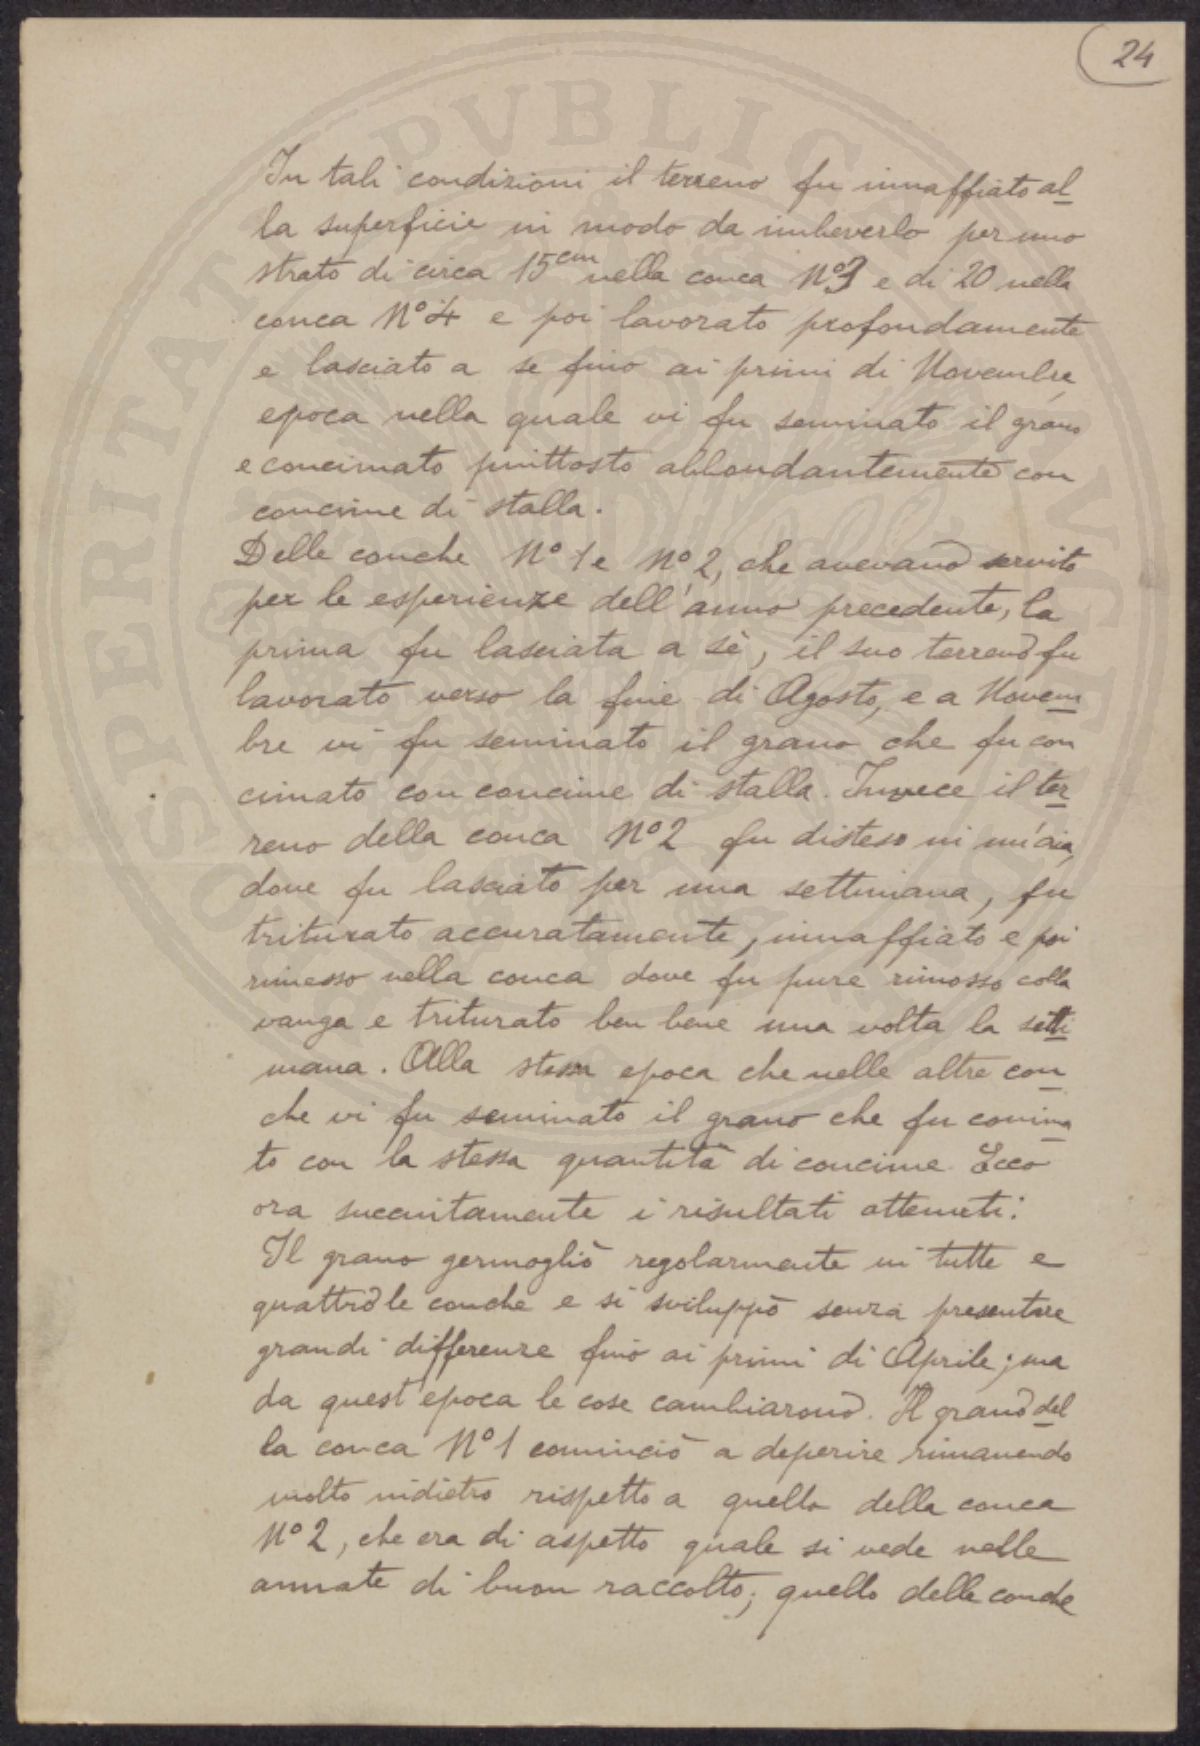 24
In tali condizioni il terreno fu innaffiato al
la superficie in modo da imbeverlo per uno
strato di circa 15cm nella conca No3 e di 20 nella
conca No 4 e poi lavorato profondamente
e lasciato a se fino ai primi di Novembre,
epoca nella quale vi fu seminato il grano
e concimato piuttosto abbondantemente con
concime di stalla.
Delle conche No 1 e No 2, che avevano servito
per le esperienze dell'anno precedente, la
prima fu lasciata a sè, il suo terreno fu
lavorato verso la fine di Agosto, e a Novem
bre vi fu seminato il grano che fu con
cimato con concime di stalla. Invece il ter
reno della conca No 2 fu disteso in un'aia,
dove fu lasciato per una settimana, fu
triturato accuratamente, innaffiato e poi
rimesso nella conca dove fu pure rimosso colla
vanga e triturato ben bene una volta la setti
mana. Alla stessa epoca che nelle altre con
che vi fu seminato il grano che fu concima
to con la stessa quantità di concime. Ecco
ora succintamente i risultati ottenuti:
Il grano germogliò regolarmente in tutte e
quattro le conche e si sviluppò senza presentare
grandi differenze fino ai primi di Aprile; ma
da quest'epoca le cose cambiarono. Il grano del
la conca No 1 cominciò a deperire rimanendo
molto indietro rispetto a quello della conca
No 2, che era di aspetto quale si vede nelle
annate di buon raccolto; quello delle conche